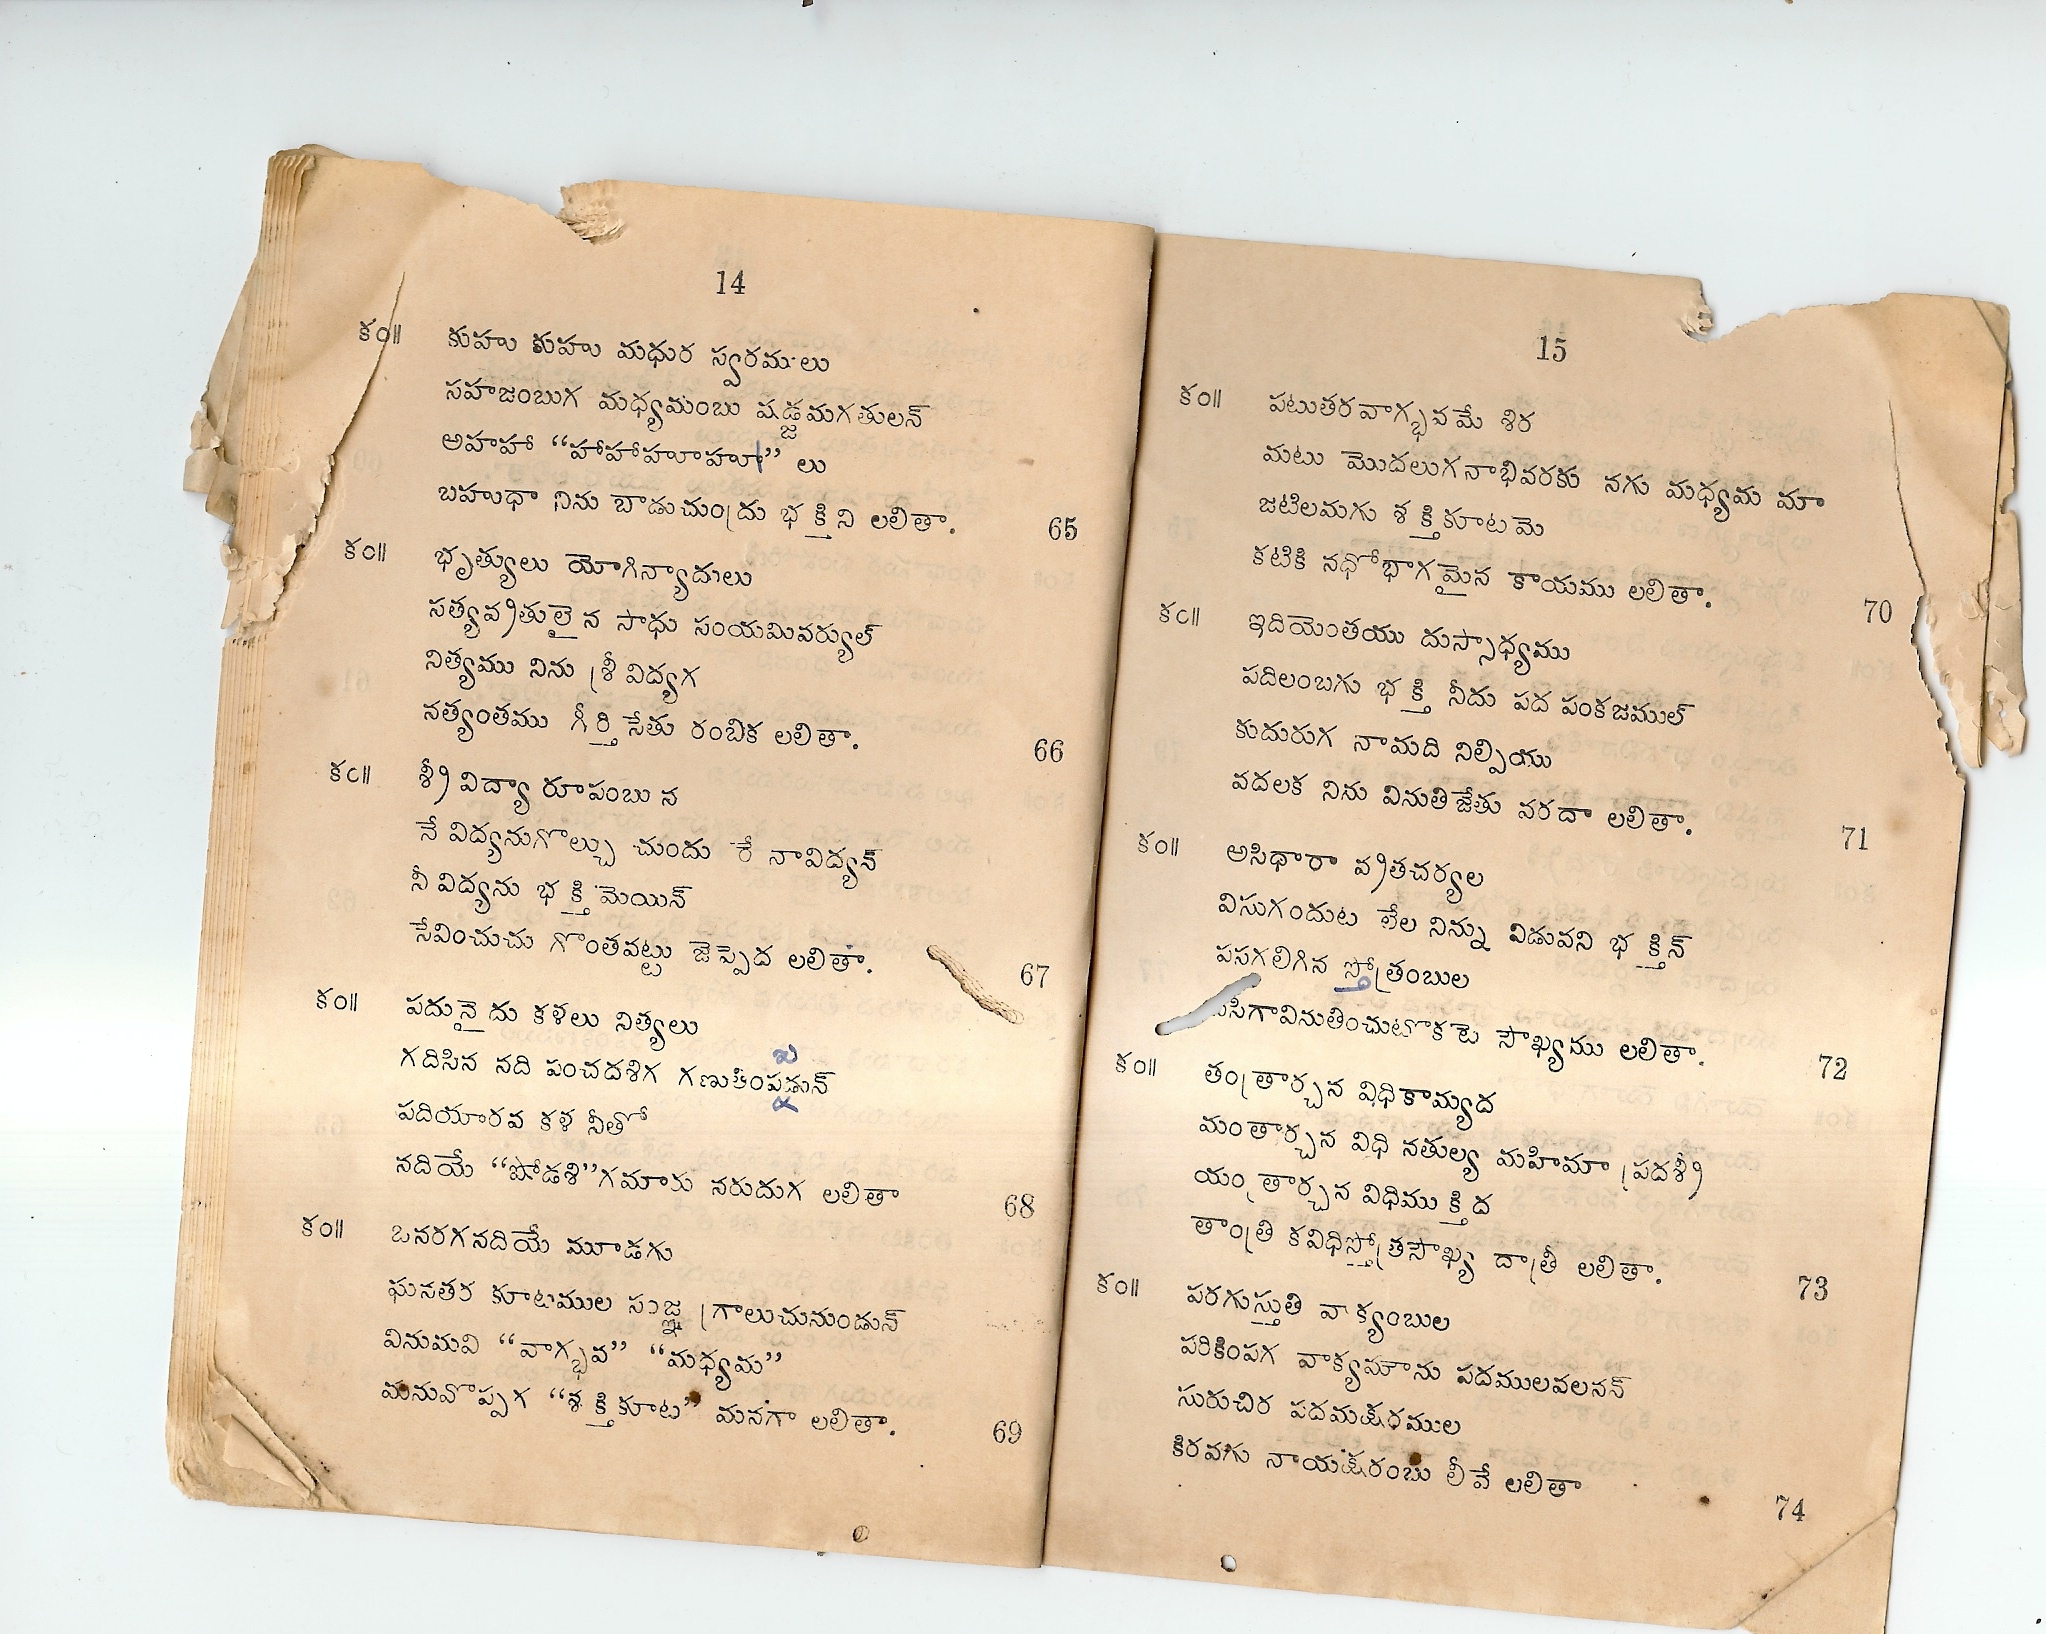 14
కం॥ కుహు కుహు మధుర స్వరములు
సహజంబుగ మధ్యమంబు షడ్జమగతులన్
అహహా “హాహాహూహూ” లు
బహుధా నిను బాడుచుంద్రు భక్తిని లలితా. 65
కం॥ భృత్యులు యోగిన్యాదులు
సత్యవ్రితులై న సాధు సంయమివర్యుల్
నిత్యము నిను శ్రీ విద్యగ
నత్యంతము గీర్తి సేతు రంబిక లలితా. 66
కం॥ శ్రీ విద్యా రూపంబు న
నే విద్యనుగొల్చు చుందు రే నావిద్యన్
నీ విద్యను భక్తి మెయిన్
సేవించుచు గొంతవట్టు జెప్పెద లలితా. 67
కం॥ పదునై దు కళలు నిత్యలు
గదిసిన నది పంచదశిగ గణుతింపడున్
పదియారవ కళ నీతో
నదియే “షోడశి”గమారు నరుదుగ లలితా 68
కం॥ ఒనరగనదియే మూడగు
ఘనతర కూటముల సంజ్ఞ గ్రాలుచునుండున్
వినుమవి “వాగ్భవ” “మధ్యమ”
మనువొప్పగ “శక్తికూట” మనగా లలితా. 69
15
కం॥ పటుతరవాగ్భవమే శిర
మటు మొదలుగనాభివరకు నగు మధ్యమ మా
జటిలమగు శక్తికూటమె
కటికి నధోభాగమైన కాయము లలితా. 70
కం॥ ఇదియెంతయు దుస్సాధ్యము
పదిలంబగు భక్తి నీదు పద పంకజముల్
కుదురుగ నామది నిల్పియు
వదలక నిను వినుతిజేతు వరదా లలితా. 71
కం॥ అసిధారా వ్రితచర్యల
విసుగందుట లేల నిన్ను విడువని భక్తిన్
పసగలిగిన స్తోత్రంబుల
సిగావినుతించుటొకటె సౌఖ్యము లలితా. 72
కం॥ తంత్రార్చన విధికామ్యద
మంతార్చన విధి నతుల్య మహిమా ప్రదశ్రీ
యంత్రార్చన విధిముక్తిద
తాంత్రి కవిధిస్తోత్రసౌఖ్య దాత్రీ లలితా. 73
కం॥ పరగుస్తుతి వాక్యంబుల
పరికింపగ వాక్యమౌను పదములవలనన్
సురుచిర పదమక్షరముల
కిరవగు నాయక్షరంబు లీవే లలితా 74